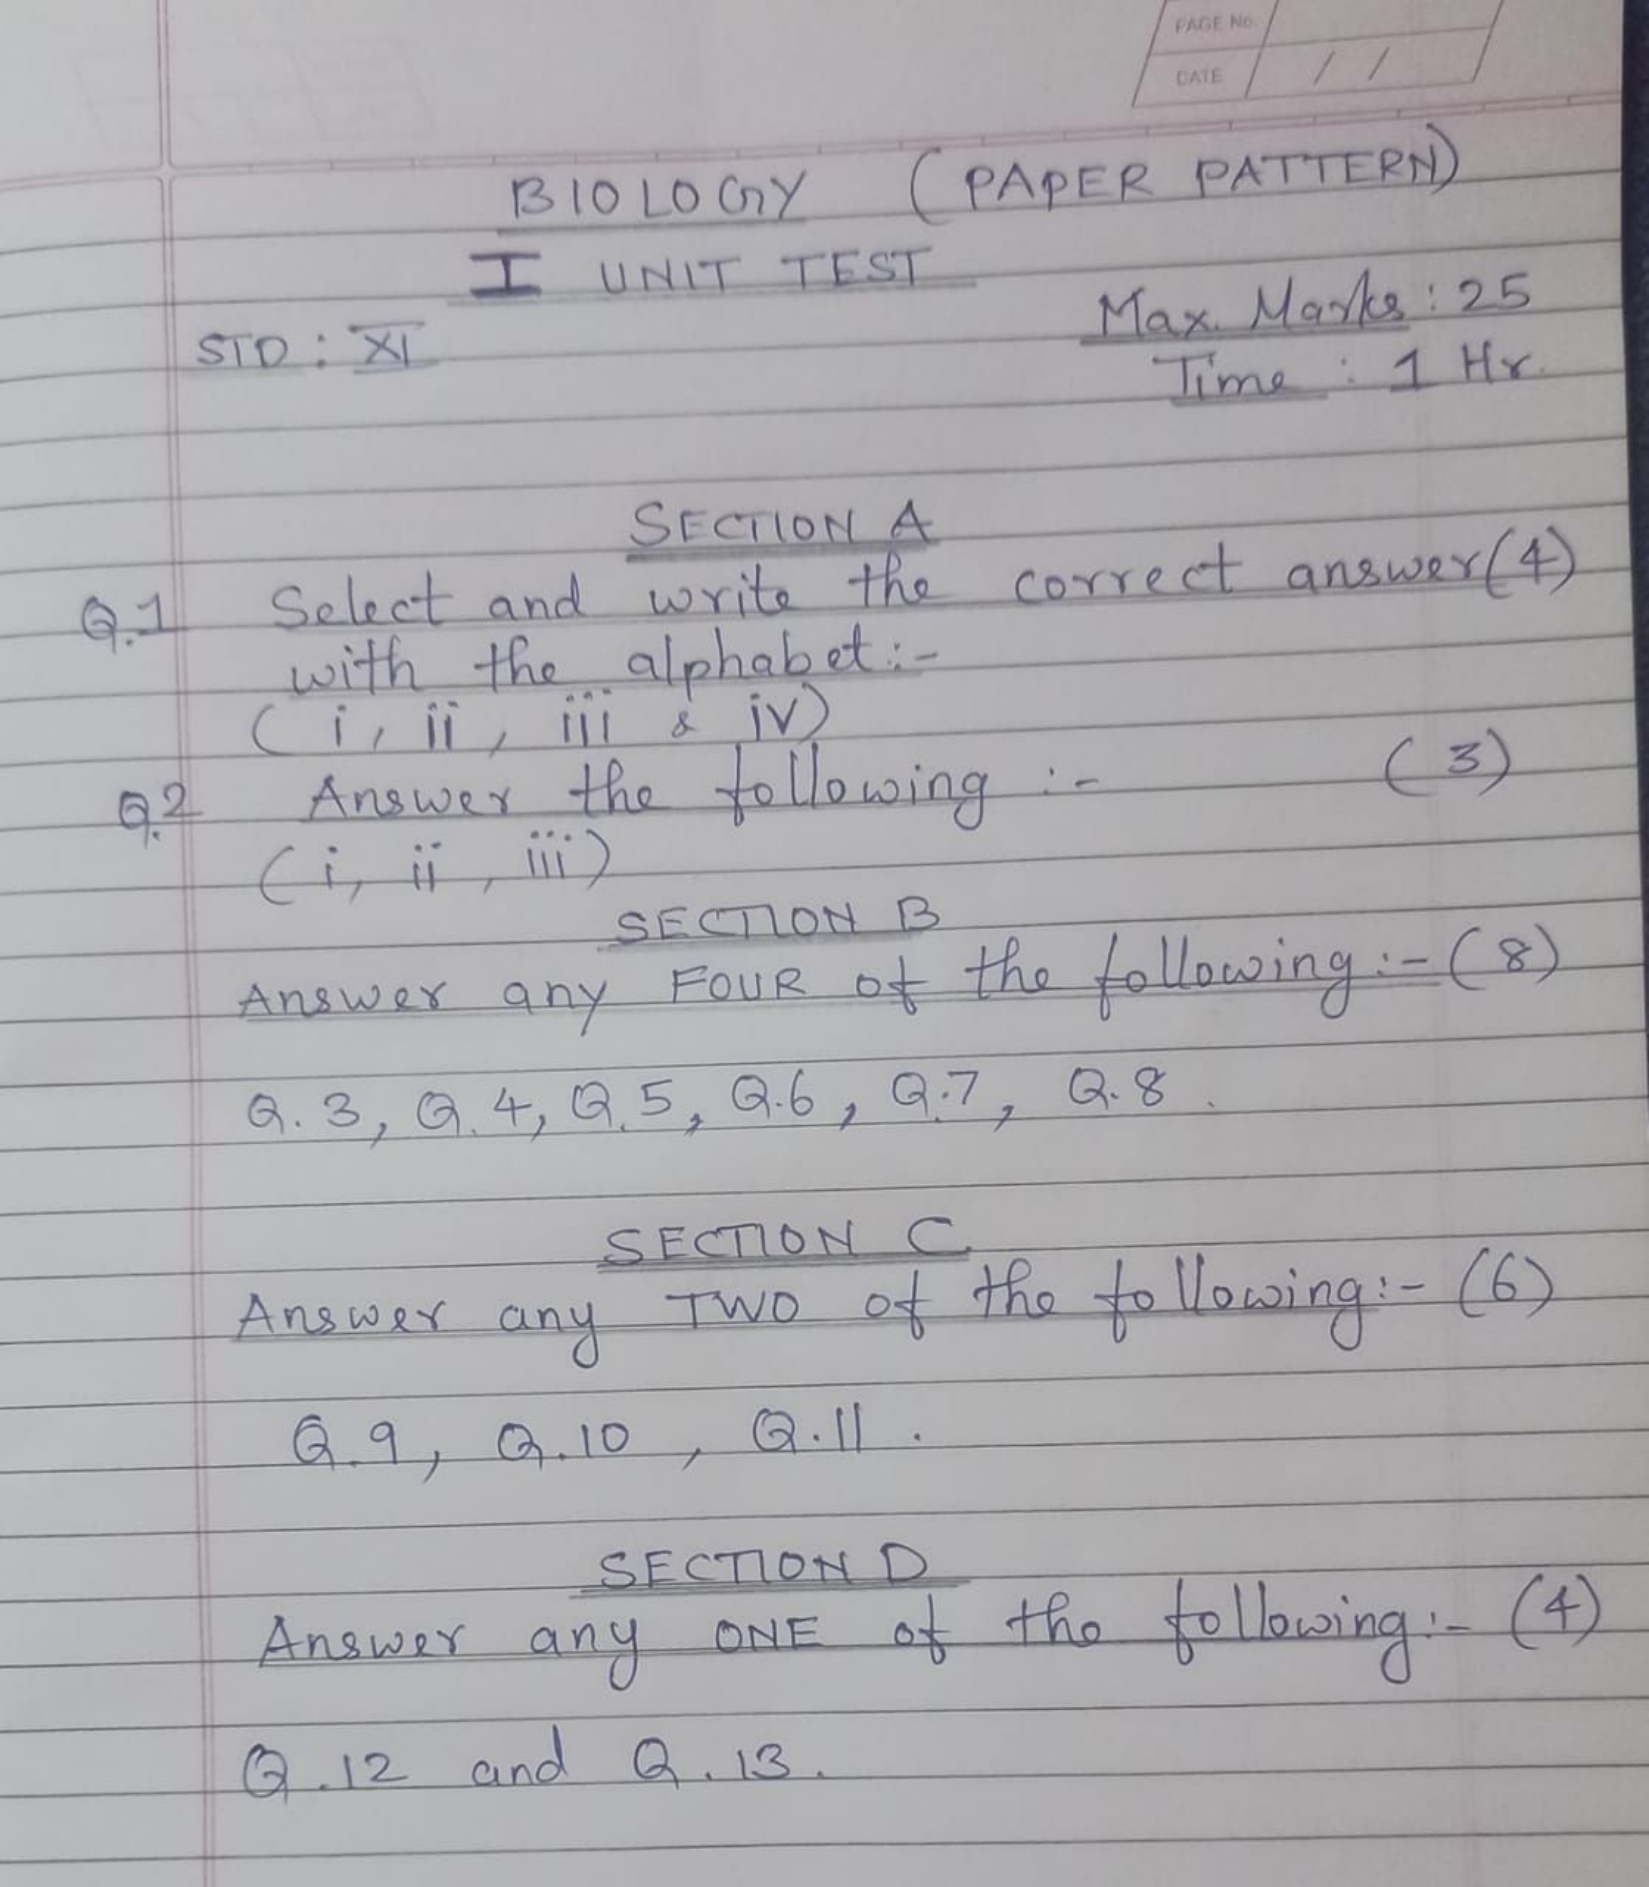 PAGE No.
DATE / /
BIOLOGY (PAPER PATTERN)
I UNIT TEST
Max. Marks : 25
STD : XI
Time : 1 Hr.
SECTION A
Q.1 Select and write the correct answer (4)
with the alphabet :-
( i, ii, iii & iv)
Q.2 Answer the following :- (3)
( i, ii, iii)
SECTION B
Answer any FOUR of the following :- (8)
Q. 3, Q. 4, Q. 5, Q.6, Q.7, Q. 8.
SECTION C
Answer any TWO of the following :- (6)
Q. 9, Q. 10, Q. 11.
SECTION D
Answer any ONE of the following :- (4)
Q. 12 and Q. 13.